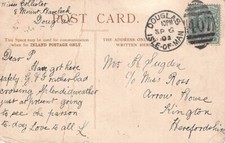 Miss Collister
8 Mount Havelock
Douglas
POST CARD.
This Space may be used for
communication when the
Card is for INLAND POSTAGE ONLY.
THE ADDRESS ONLY TO BE
WRITTEN ON THIS SIDE.
DOUGLAS
SP 6
04
ISLE-OF-MAN
407
Dear P
Have got here
safely. G.P. & rather bad
crossing. Splendid weather
just at present going
to see the person
to day Love to all L
Mrs H. Sugden
To Miss Ross
Arrow House
Kington
Herefordshire